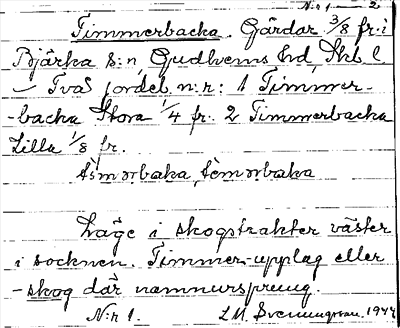 N:r 1 — 2
Timmerbacka. Gärdar 3/8 fr. i
Bjärka S:n, Gudhems Hd, Skb. l
— Två jordel. n:r: 1 Timmer-
-backa Stora 1/4 fr. 2 Timmerbacka
Lilla 1/8 fr.
tìmərbaka, tèmərbaka
Läge i skogstrakter väster
i socknen. Timmer-upplag eller
-skog där namnursprung.
N:r 1. L.M. Svenungsson. 1944